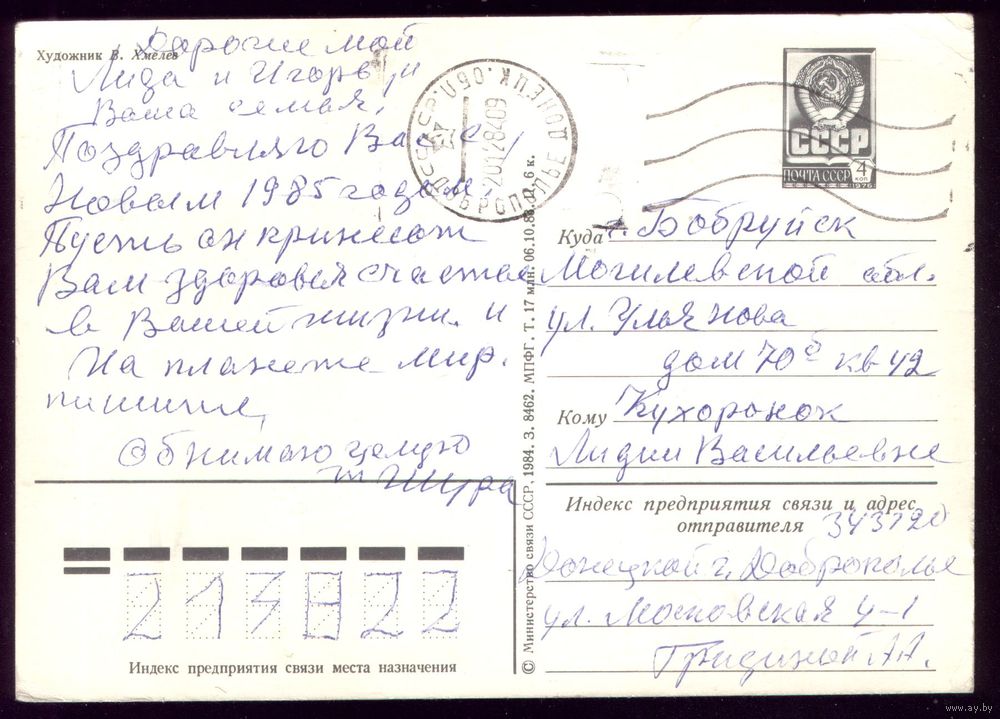 Художник В. Хмелев
Дорогие мои
Лида и Игорь и
Ваша семья,
Поздравляю Вас с
Новым 1985 годом,
Пусть он принесет
Вам здоровья счастья
в Вашей жизни. и
На планете мир.
пишите,
Обнимаю целую
т Шура
ДОНЕЦК. ОБЛ.
ДОБРОПОЛЬЕ
201284-09
СССР
ПОЧТА СССР
4 коп
1976
Куда г. Бобруйск
Могилевской обл.
ул. Ульянова
дом 70б кв 42
Кому Кухоронок
Лидии Васильевне
Индекс предприятия связи и адрес
отправителя 343120
Донецкой г. Доброполье
ул. Московская 4-1
Гридиной А.А.
213822
Индекс предприятия связи места назначения
© Министерство связи СССР. 1984. З. 8462. МПФГ. Т. 17 млн. 06.10.83. Ц. 6 к.
www.ay.by